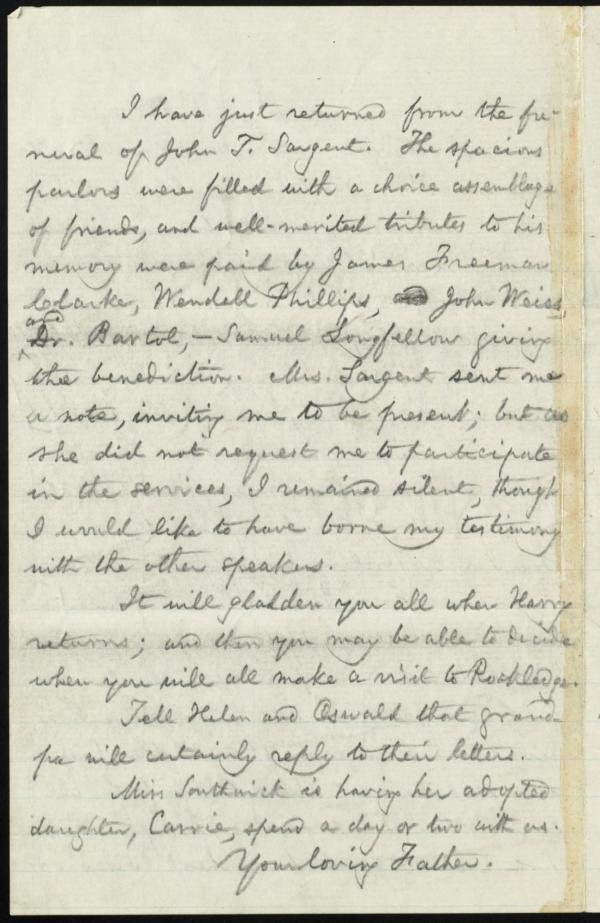 I have just returned from the fu-
neral of John T. Sargent. The spacious
parlors were filled with a choice assemblage
of friends, and well-merited tributes to his
memory were paid by James Freeman
Clarke, Wendell Phillips, John Weiss,
and
Dr. Bartol,—Samuel Longfellow giving
the benediction. Mrs. Sargent sent me
a note, inviting me to be present; but as
she did not request me to participate
in the services, I remained silent, though
I would like to have borne my testimony
with the other speakers.
It will gladden you all when Harry
returns; and then you may be able to decide
when you will all make a visit to Rockledge.
Tell Helen and Oswald that grand-
pa will certainly reply to their letters.
Miss Southwick is having her adopted
daughter, Carrie, spend a day or two with us.
Your loving Father.